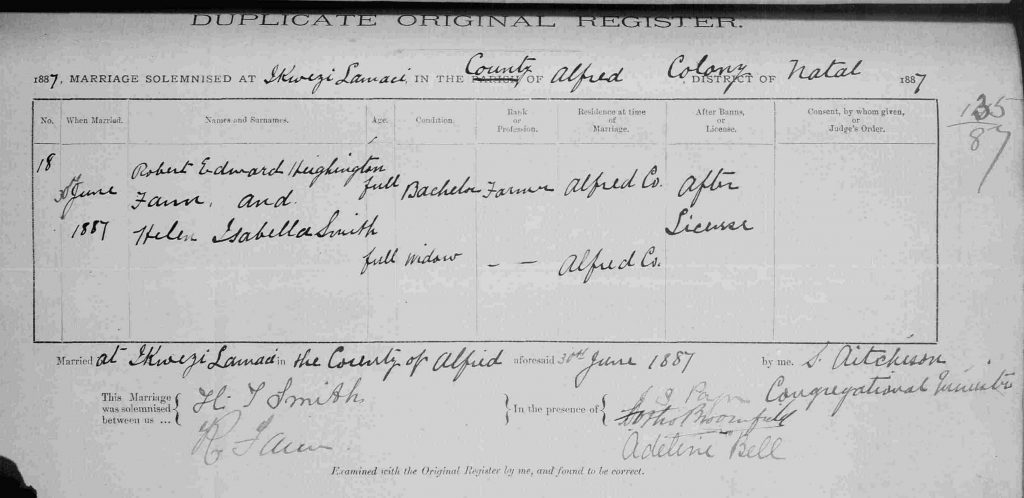 DUPLICATE ORIGINAL REGISTER.
1887, MARRIAGE SOLEMNISED AT Ikwezi Lamaci, IN THE County PARISH OF Alfred Colony DISTRICT OF Natal 1887
135
87
No. When Married. Names and Surnames. Age. Condition. Rank or Profession. Residence at time of Marriage. After Banns, or License. Consent, by whom given, or Judge's Order.
18 Robert Edward Heighington
30th June Fann, and full Bachelor Farmer Alfred Co. After
1887 Helen Isabella Smith License
full widow — — Alfred Co.
Married at Ikwezi Lamaci in the County of Alfred aforesaid 30th June 1887 by me. S. Aitchison
Congregational Minister
This Marriage was solemnised between us ... { H. I Smith
R Fann
In the presence of {
Broomfield
Adeline Bell
Examined with the Original Register by me, and found to be correct.